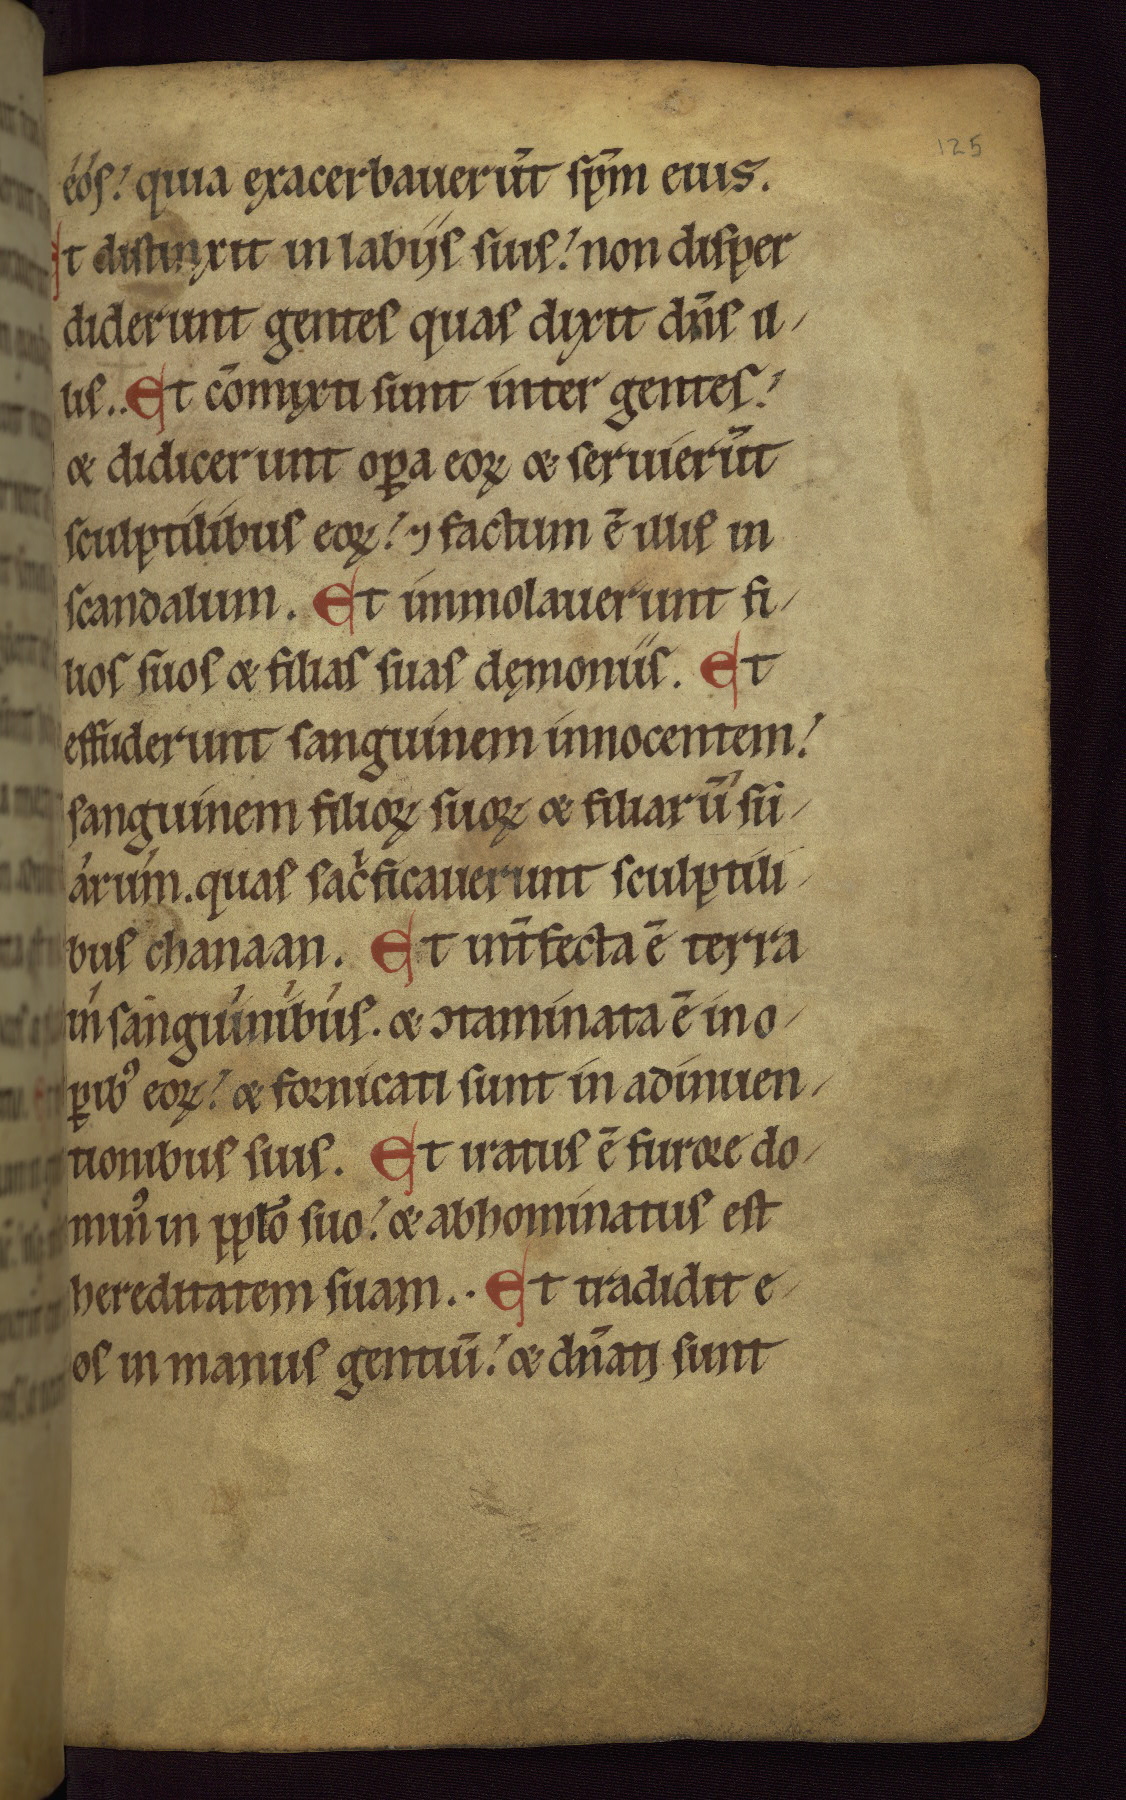 125
eos! quia exacerbauerūt sp̄m eius.
Et distinxit in labijs suis! non disper
diderunt gentes quas dixit dn̄s il-
lis.. Et cōmixti sunt inter gentes!
& didicerunt oꝑa eoꝝ & seruierūt
sculptilibus eoꝝ! ⁊ factum ē illis in
scandalum. Et immolauerunt fi-
lios suos & filias suas dęmoniis. Et
effuderunt sanguinem innocentem!
sanguinem filioꝝ suoꝝ & filiarū su-
arum. quas sac̓ficauerunt sculptili-
bus chanaan. Et int̄fecta ē terra
in sanguinibus. & ↄtaminata ē in o-
ꝑib᾽ eoꝝ! & fornicati sunt in adinuen-
tionibus suis. Et iratus ē furore do-
min᾽ in pplō suo! & abhominatus est
hereditatem suam.. Et tradidit e-
os in manus gentiū! & dn̄ati sunt